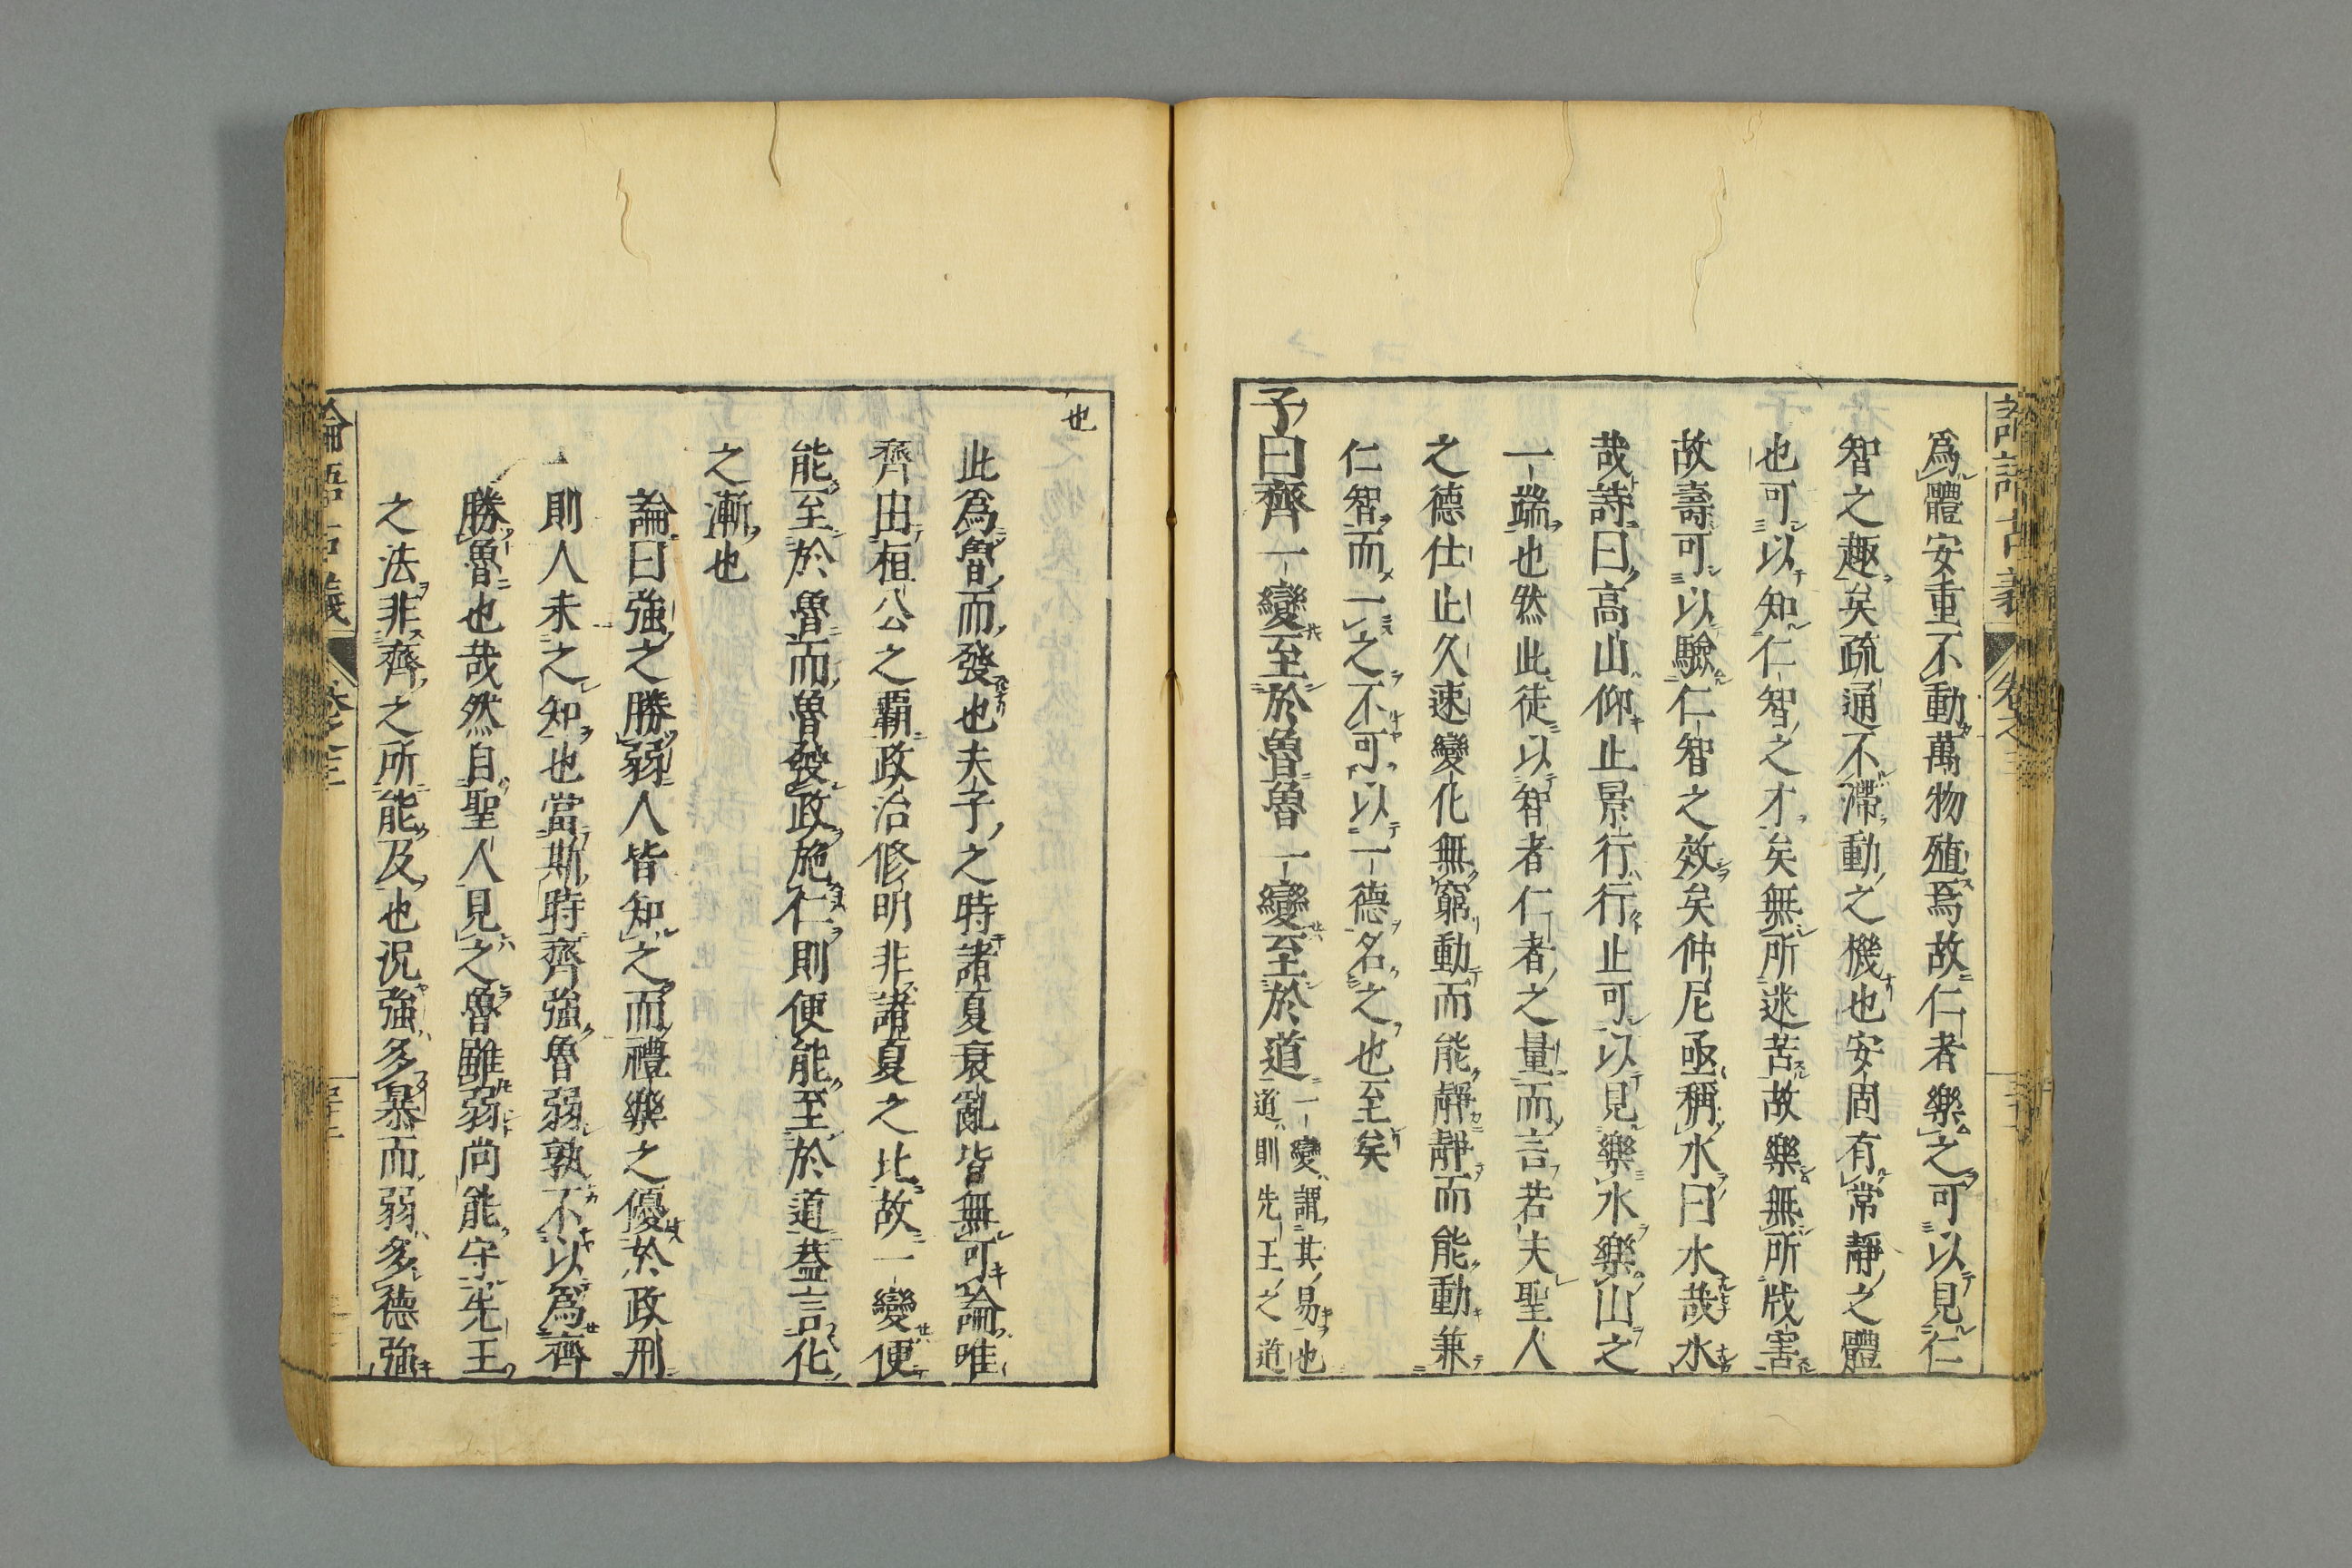 爲體安重不動萬物殖焉故仁者樂之可以見仁
智之趣矣疏通不滯動之機也安固有常靜之體
也可以知仁智之才矣無所迷苦故樂無所戕害
故壽可以驗仁智之效矣仲尼亟稱水曰水哉水
哉詩曰高山仰止景行行止可以見樂水樂山之
一端也然此徒以智者仁者之量而言若夫聖人
之德仕止久速變化無窮動而能靜靜而能動兼
仁智而一之不可以一德名之也至矣
子曰齊一變至於魯魯一變至於道
一變謂其易也
道則先王之道
也
此爲魯而發也夫子之時諸夏衰亂皆無可論唯
齊由桓公之覇政治修明非諸夏之比故一變便
能至於魯而魯發政施仁則便能至於道蓋言化
之漸也
論曰強之勝弱人皆知之而禮樂之優於政刑
則人未之知也當斯時齊強魯弱孰不以爲齊
勝魯也哉然自聖人見之魯雖弱尚能守先王
之法非齊之所能及也況強多暴而弱多德強
論語古義
卷之三